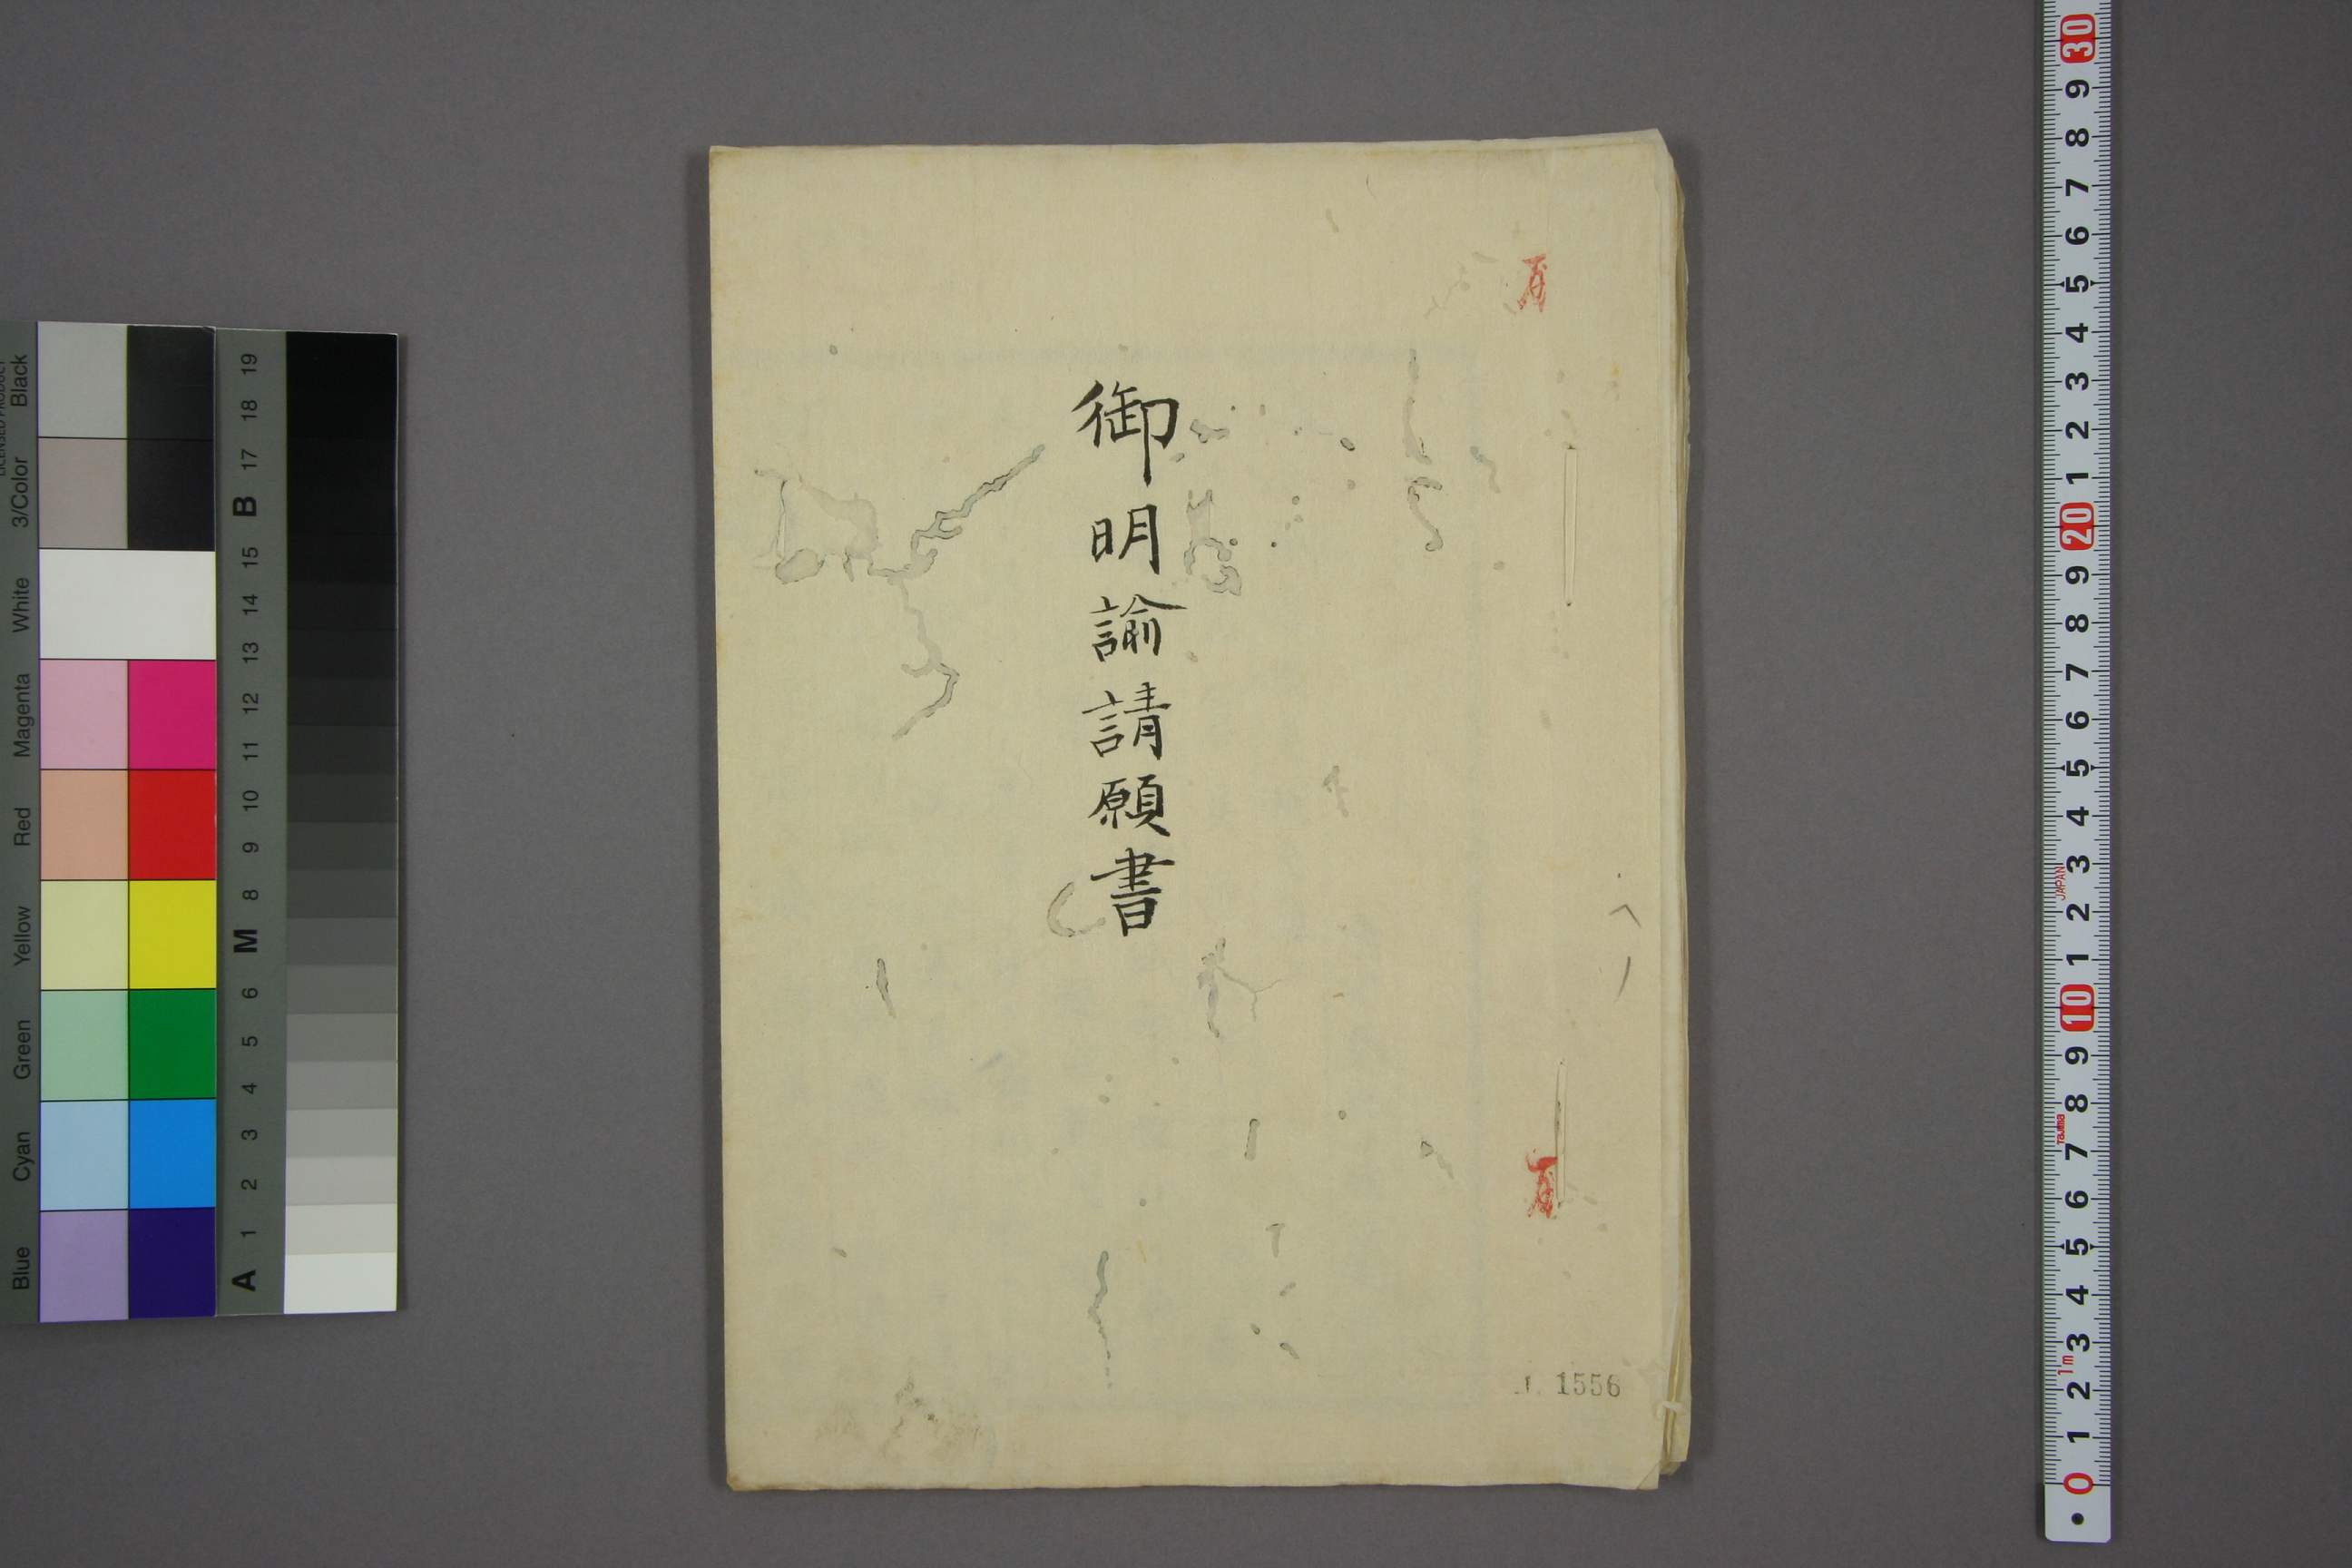 御明諭請願書
1556
Black
3/Color
White
Magenta
Red
Yellow
Green
Cyan
Blue
19
18
17
B
15
14
13
12
11
10
9
8
M
6
5
4
3
2
1
A
30
9
8
7
6
5
4
3
2
1
20
9
8
7
6
5
4
3
JAPAN
2
1
10
9
8
Tajima
7
6
5
4
3
1m
2
1
0